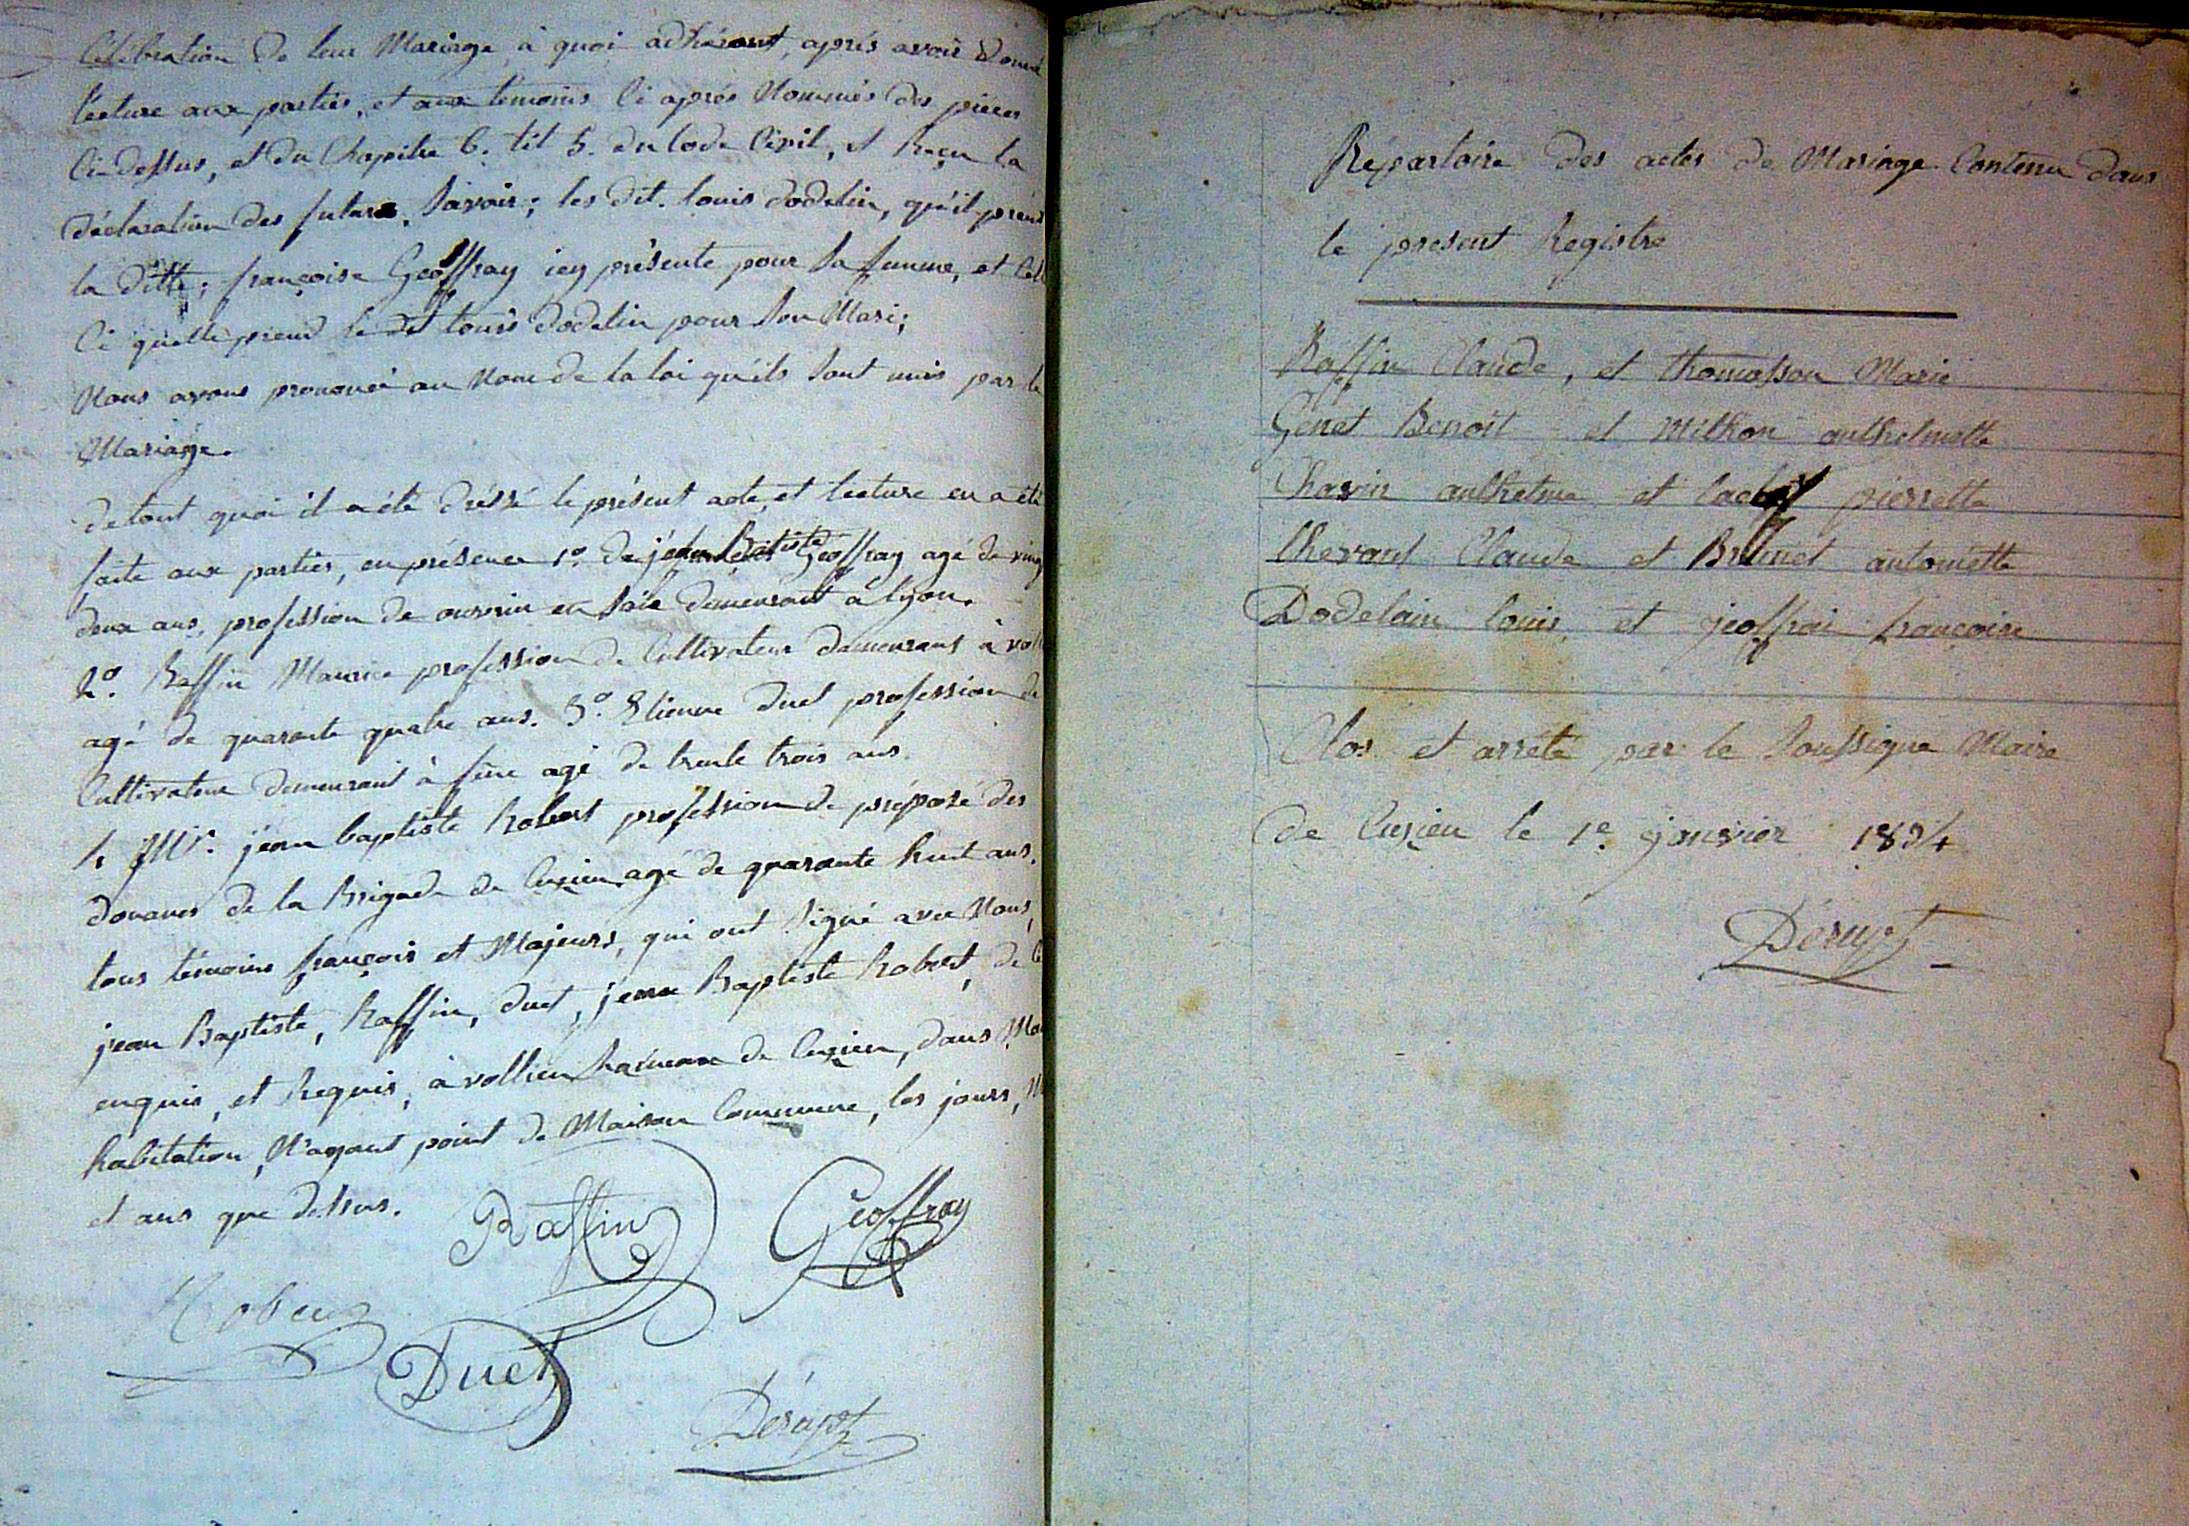 Célébration de leur Mariage, à quoi adhérant, après avoir donné
lecture aux parties, et aux temoins Ci après Nommés des pièces
Ci-dessus, et du Chapitre 6. tit 5. du Code Civil, et Reçu la
déclaration des futurs. Savoir; les dit. louis dodelin, qu'il prend
la ditte; françoise Geoffray icy présente pour Sa femme, et
Ci quelle prend le dit louis dodelin pour Son Mari;
Nous avons prononcé au Nom de la loi qu'ils Sont unis par le
Mariage.
de tout quoi il a été dréssé le présent acte, et lecture en a été
faite aux parties, en présence 1º. de jean Batiste Geoffray agé de
deux ans, profession de ouvrier en Soie demeurant à lyon.
2º. Raffin Maurice profession de Cultivateur demeurant à
agé de quarante quatre ans. 3º. Etienne duet profession de
Cultivateur demeurant à agé de trente trois ans.
4. Mr. jean baptiste Robert profession de préposé des
douanes de la Brigade de Cuzieu agé de quarante huit ans.
tous témoins françois et Majeurs, qui ont Signé avec Nous,
jean Baptiste, Raffin, duet, jean Baptiste Robert, de
enquis, et Requis, à vollien hameau de Cuzieu, dans
habitation, N'ayant point de Maison Commune, les jours,
et ans que dessus. Raffin Geoffray
Robert
Duet
Dérupt
Répartoire des actes de Mariage Contenu dans
le present Registre
Raffin Claude, et thomasson Marie
Génet Benoit et Milhon anthelmette
Chavin anthelme et pierrette
Claude et Brunet antoinette
Dodelain louis, et jeoffrai françoise
Clos et arrété par le Soussigne Maire
de Cuzieu le 1e. janvier 1834
Dérupt